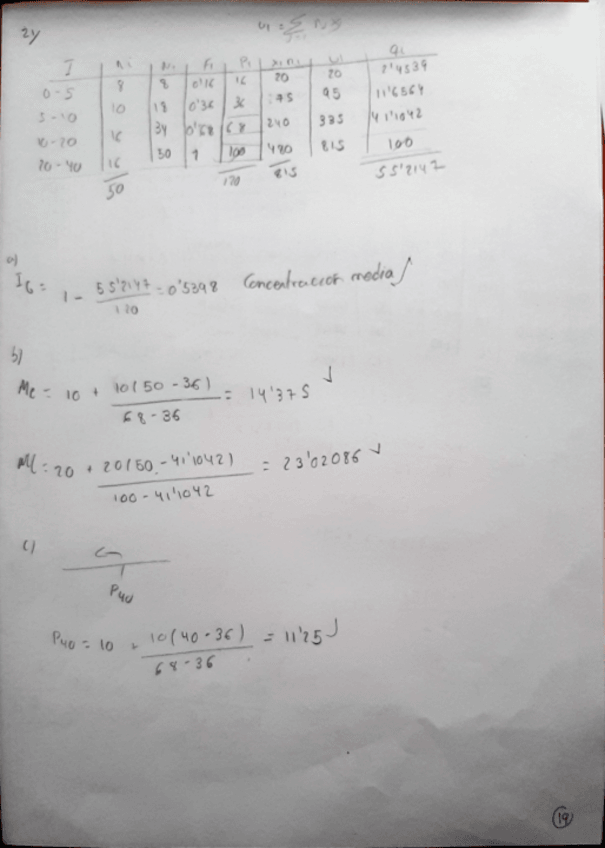 2y
I ni Ni Fi Pi xi ni ui qi
0-5 8 8 0'16 16 20 20 2'4539
5-10 10 18 0'36 36 75 95 11'6564
10-20 16 34 0'68 68 240 335 41'1042
20-40 16 50 1 100 480 815 100
50 120 815 55'2147
a)
IG = 1 - 55'2147 = 0'5398 Concentración media
120
b)
Me = 10 + 10(50-36) = 14'375
68-36
Ml = 20 + 20(50-41'1042) = 23'02086
100-41'1042
c)
P40
P40 = 10 + 10(40-36) = 11'25
68-36
19